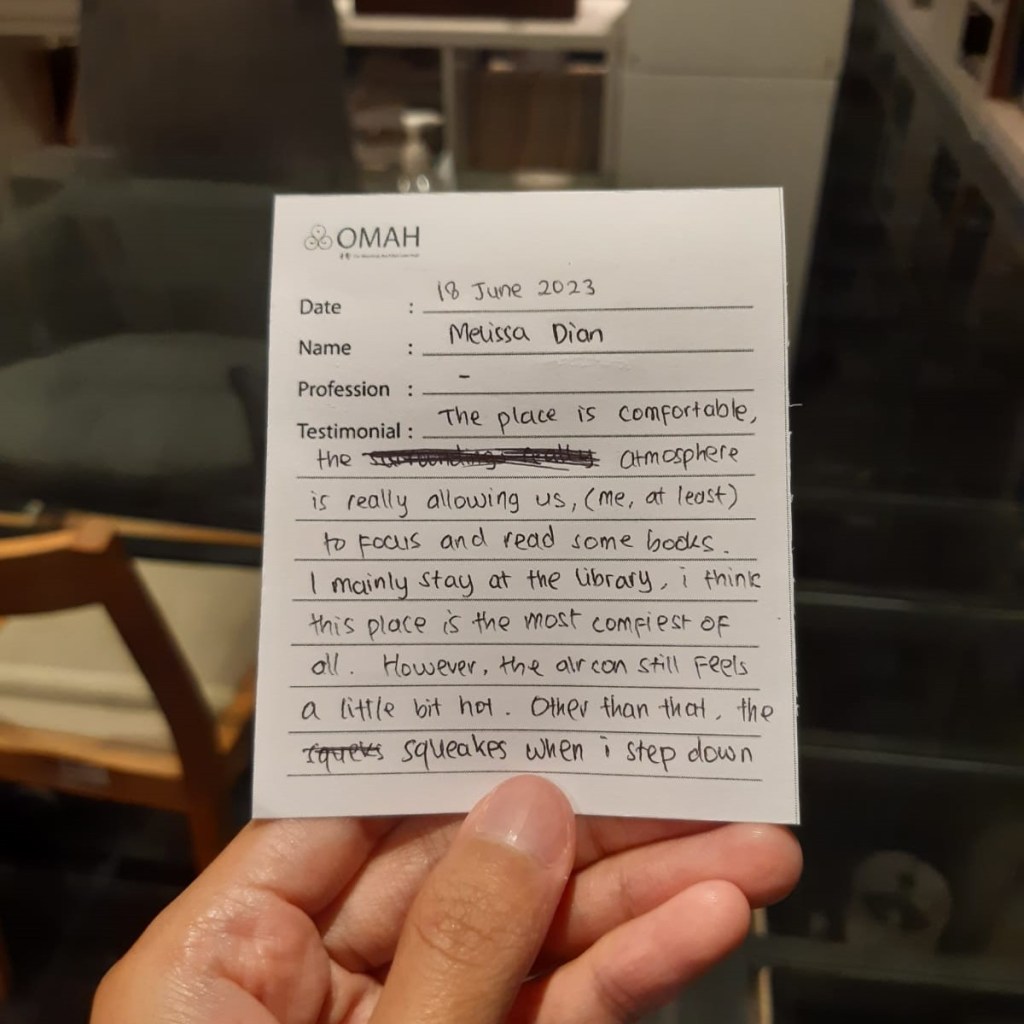 OMAH
Date : 18 June 2023
Name : Melissa Dian
Profession : -
Testimonial : The place is comfortable,
the atmosphere
is really allowing us, (me, at least)
to focus and read some books.
I mainly stay at the library, i think
this place is the most comfiest of
all. However, the air con still feels
a little bit hot. Other than that, the
squeakes when i step down